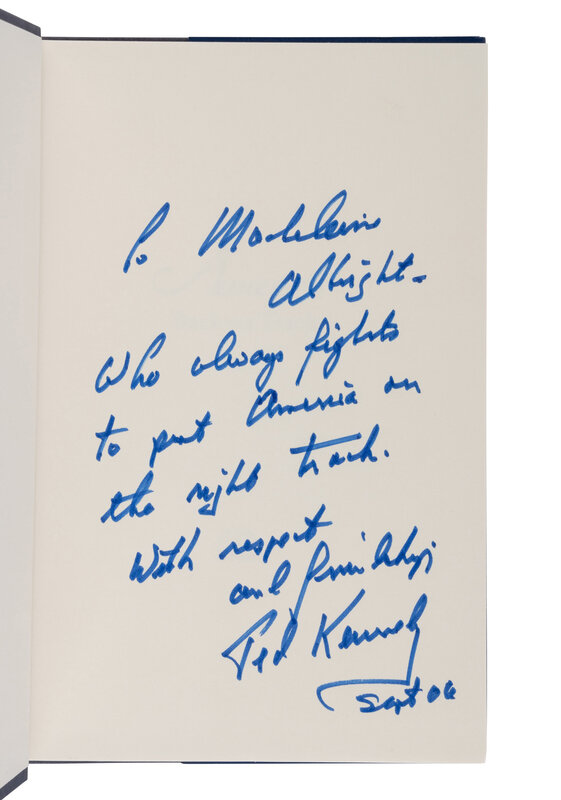 To Madeleine
Albright -
Who always fights
to put America on
the right track.
With respect
and friendship
Ted Kennedy
Sept 06